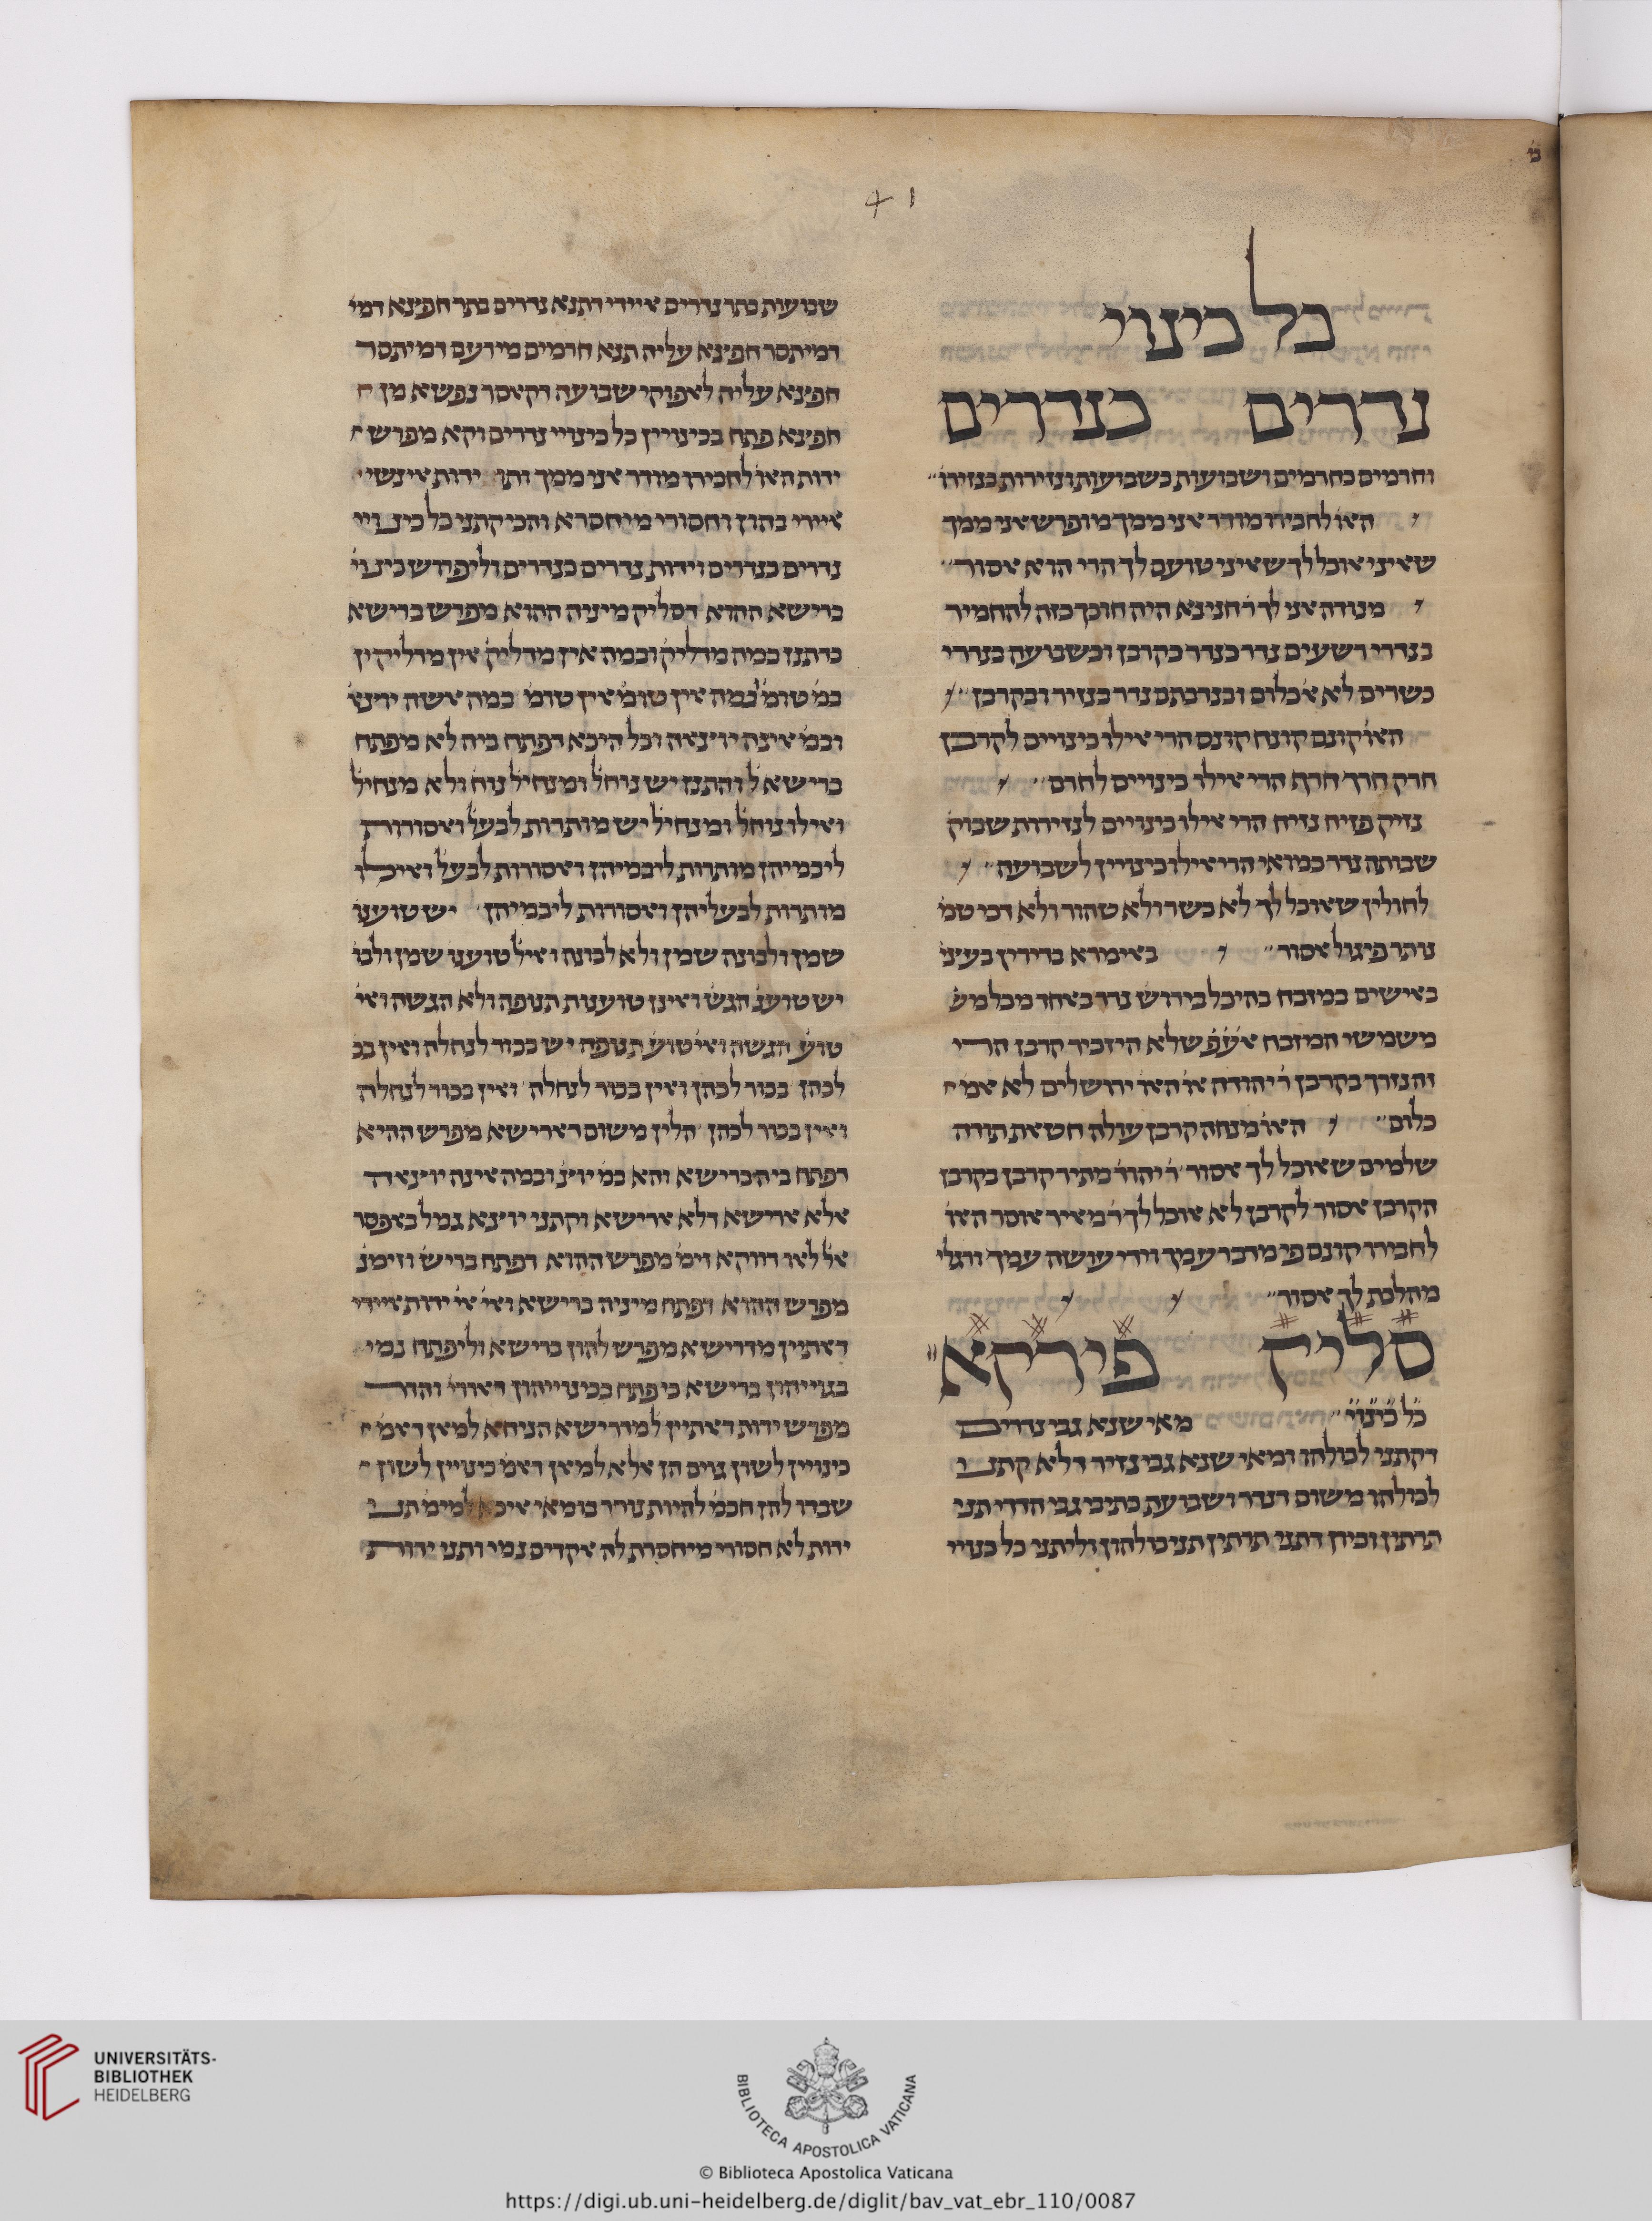 מ
41
כל כינויי
נדרים כנדרים
וחרמים כחרמים ושבועות כשבועות ונזירות כנזירו׳
האו׳ לחבירו מודר אני ממך מופרש אני ממך
שאיני אוכל לך שאיני טועם לך הרי הוא אסור
מנודה אני לך ר׳ חנינא היה חוכך בזה להחמיר
כנדרי רשעים נדר כנדר בקרבן ובשבועה כנדרי
כשרים לא א׳ כלום ובנדבתם נדר בנזיר ובקרבן
האו׳ קונם קונח קונס הרי אילו כינויים לקרבן
חרק חרך חרף הרי אילו כינויים לחרם
נזיק פזיח נזיח הרי אילו כינויים לנזירות שבוק׳
שבותה נדר כמואי הרי אילו כינויין לשבועה
לחולין שאוכל לך לא כשר ולא טהור ולא דכי טמ׳
נותר פיגול אסור כאימרא כדירין כעצי׳
כאישים כמזבח כהיכל כירוש׳ נדר באחד מכל מש׳
משמשי המזבח אע׳פ׳ שלא היזכיר קרבן הרי
זה נדר בקרבן ר׳ יהודה או׳ האו׳ ירושלים לא אמ׳
כלום האו׳ מנחה קרבן עולה חטאת תודה
שלמים שאוכל לך אסור ר׳ יהוד׳ מתיר קרבן בקרבן
הקרבן אסור לקרבן לא אוכל לך ר׳ מאיר אוסר האו׳
לחבירו קונם פי מדבר עמך וידי עושה עמך ורגלי
מהלכת לך אסור
סליק פירקא
כל כינויי מאי שנא גבי נדרים
דקתני לכולהו ומאי שנא גבי נזיר דלא קתני
לכולהו משום דנדר ושבועה כתיבי גבי הדדי תני
תרתין וכיון דתני תרתין תני כולהון וליתני כל כנויי
שבועות בתר נדרים איידי דתנא נדרים בתר חפצא דמי
דמיתסר חפצא עליה תנא חרמים מידעם דמיתסר
חפצא עליה לאפוקי שבועה דקאסר נפשא מן ח
חפצא פתח בכינויין כל כינויי נדרים וקא מפרש י
ידות האו׳ לחבירו מודר אני ממך ותו ידות אינשי
איירי בהון וחסורי מיחסרא והכי קתני כל כינויי
נדרים כנדרים וידות נדרים כנדרים וליפרוש כינוי׳
ברישא ההוא דסליק מיניה ההוא מפרש ברישא
כדתנן במה מדליק׳ ובמה אין מדליק׳ אין מדליקין
במ׳ טומ׳ ובמה אין טומ׳ אין טומ׳ במה אשה יוצא׳
ובמ׳ אינה יוצאה וכל היכא דפתח ביה לא מפתח
ברישא ל׳ והתנן יש נוחל׳ ומנחיל׳ נוח׳ ולא מנחיל׳
ואילו נוחל׳ ומנחיל׳ יש מותרות לבעל׳ ואסורות
ליבמיהן מותרות ליבמיהן ואסורות לבעל׳ ואילו
מותרות לבעליהן ואסורות ליבמיהן יש טועני׳
שמן ולבונה שמן ולא לבונה ואיל׳ טועני׳ שמן ולבו׳
יש טוענ׳ הגש׳ ואינן טוענות תנופה ולא הגשה ואי׳
טוע׳ הגשה ואי׳ טוע׳ תנופה יש בכור לנחלה ואין בכ׳
לכהן בכור לכהן ואין בכור לנחלה ואין בכור לנחלה
ואין בכור לכהן הלין משום דאדרישא מפרש ההיא
דפתח ביה ברישא והא במ׳ יוצ׳ ובמה אינה יוצאה
אלא ארישא דלא ארישא וקתני יוצא גמל באפסר
אל׳ לאו דווקא זימ׳ מפרש ההוא דפתח בריש׳ וזימנ׳
מפרש ההוא דפתח מיניה ברישא ואי׳ אי׳ ידות איידי
דאתיין מדרישא מפרש להון ברישא וליפתח נמי
בגווייהון ברישא כי פתח בכינוייהון דאורי׳ והדר
מפרש ידות דאתיין למדרישא הניחא למאן דאמ׳
כינויין לשון גוים הן אלא למאן דאמ׳ כינויין לשון
שבדו להן חכמ׳ להיות נודר בו מאי איכא למימ׳ תני
ידות לא חסורי מיחסרת לה אקדים נמי ותני ידות
UNIVERSITÄTS-
BIBLIOTHEK
HEIDELBERG
BIBLIOTECA APOSTOLICA VATICANA
© Biblioteca Apostolica Vaticana
https://digi.ub.uni-heidelberg.de/diglit/bav_vat_ebr_110/0087